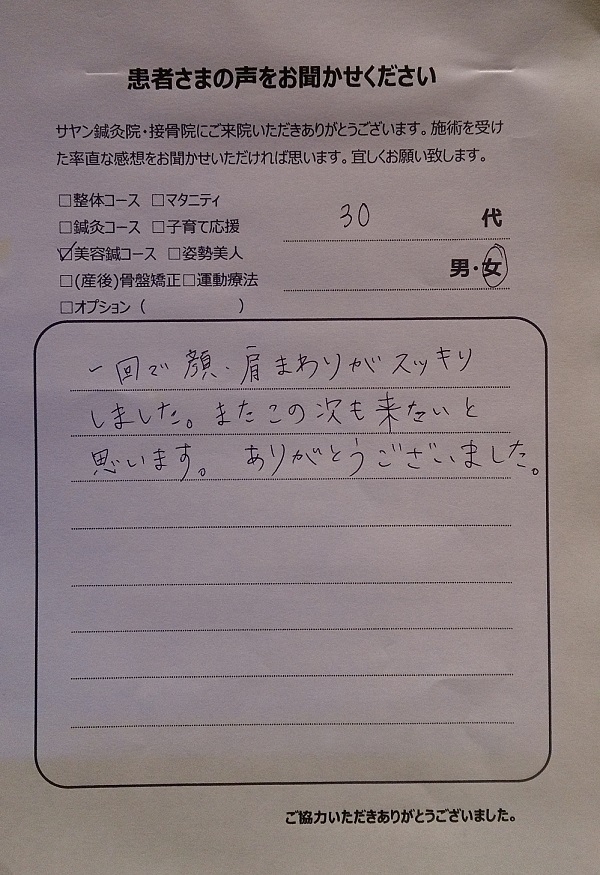 患者さまの声をお聞かせください
サヤン鍼灸院・接骨院にご来院いただきありがとうございます。施術を受け
た率直な感想をお聞かせいただければ思います。宜しくお願い致します。
□整体コース □マタニティ
□鍼灸コース □子育て応援
☑美容鍼コース □姿勢美人
□(産後)骨盤矯正□運動療法
□オプション ( )
30 代
男・女
一回で顔・肩まわりがスッキリ
しました。またこの次も来たいと
思います。 ありがとうございました。
ご協力いただきありがとうございました。